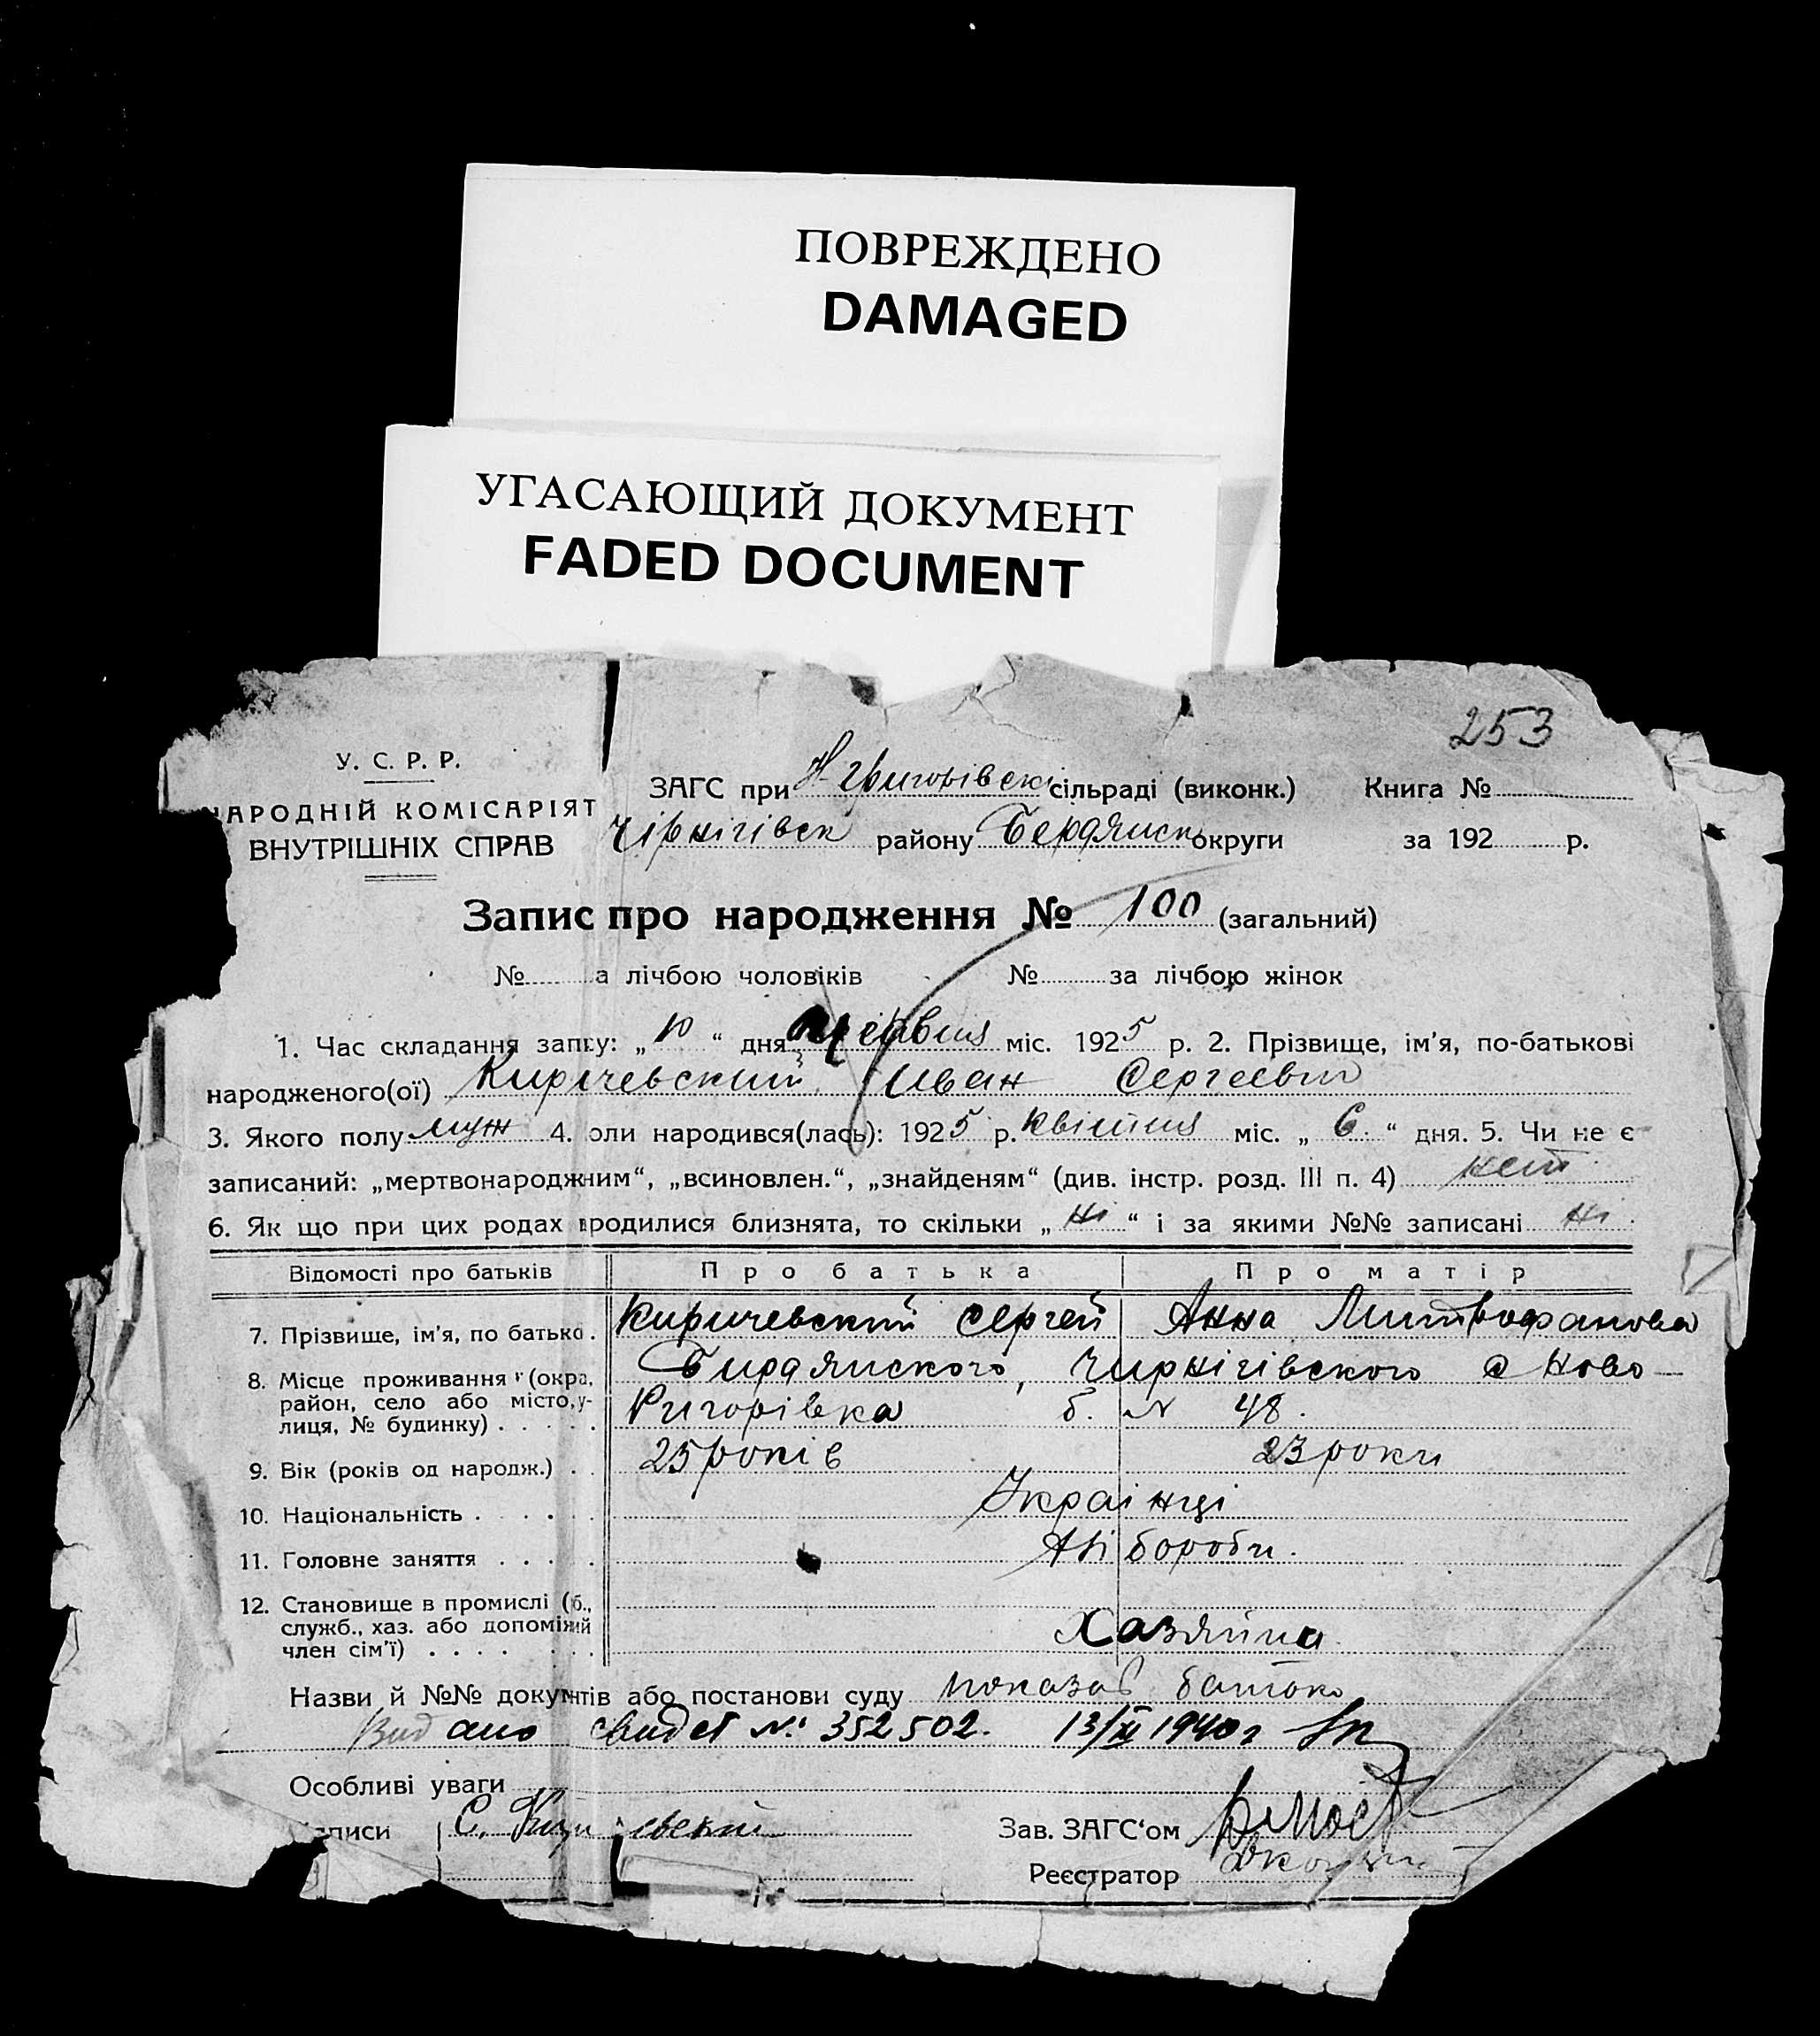 ПОВРЕЖДЕНО
DAMAGED
УГАСАЮЩИЙ ДОКУМЕНТ
FADED DOCUMENT
253
У. С. Р. Р.
НАРОДНІЙ КОМІСАРІЯТ
ВНУТРІШНІХ СПРАВ
ЗАГС при Н-Григорівск сільраді (виконк.) Книга №
Чірнігівск району Бердянск округи за 192 р.
Запис про народження № 100 (загальний)
№ а лічбою чоловіків № за лічбою жінок
1. Час складання запису: „ 10 “ дня міс. 1925 р. 2. Прізвище, ім'я, по-батькові
народженого(ої) Киричевский Иван Сергеевич
3. Якого полу муж 4. оли народився(лась): 1925 р. Квітня міс. „ 6 “ дня. 5. Чи не є
записаний: „мертвонароджним“, „всиновлен.“, „знайденям“ (див. інстр. розд. III п. 4) нет
6. Як що при цих родах вродилися близнята, то скільки „ ні “ і за якими №№ записані ні
Відомості про батьків Про батька Про матір
7. Прізвище, ім'я, по батько. Киричевский Сергей Анна Митрофанова
8. Місце проживання (окра, район, село або місто, у- лиця, № будинку) Бирдянского, Чирнігівского с Ново-
Григорівка б. N 48.
9. Вік (років од народж.) 25 років 23 роки
10. Національність Украінці
11. Головне заняття
12. Становище в промислі (б.,
служб., хаз. або допоміжний
член сім'ї) Хазяйна
Назви й №№ документів або постанови суду показав батько
Видано свидет №: 352502. 13/XI 1940 г
Особливі уваги
Підписи С. Киричевский Зав. ЗАГС'ом
Реєстратор